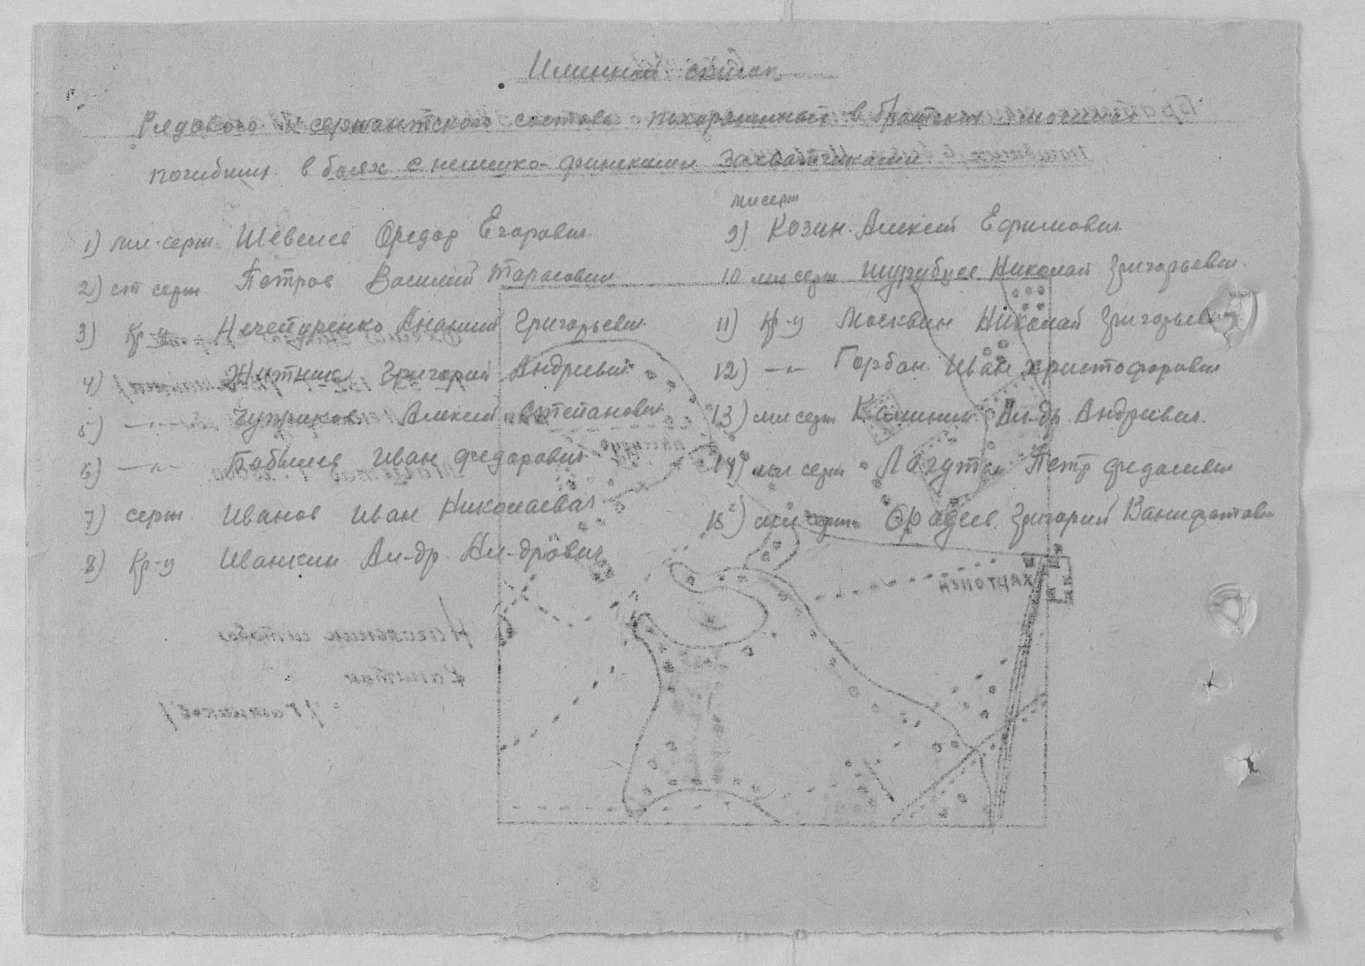 Именной список
Рядового и сержантского состава похороненных в братских могилах
погибших в боях с немецко-финскими захватчиками
1) мл. серж Шевелев Федор Егорович
2) ст серж Петров Василий Тарасович
3) Кр-ц Нечетуренко Ананий Григорьевич
4) Григорий Андреевич
5) —"— Алексей Степанович
6) —"— Бабышев Иван Федорович
7) серж Иванов Иван Николаевич
8) Кр-ц Шанкин Ал-др Ал-дрович
мл серж
9) Козин Алексей Ефимович
10 мл серж Шурубцев Николай Григорьевич
11) Кр-ц Москвин Николай Григорьевич
12) —"— Горбан Иван Христофорович
13) мл серж Калинин Ал-др Андреевич
14) мл серж Лагутин Петр
15) мл серж Фадеев Григорий
Хартопей
Начальник штаба
Капитан